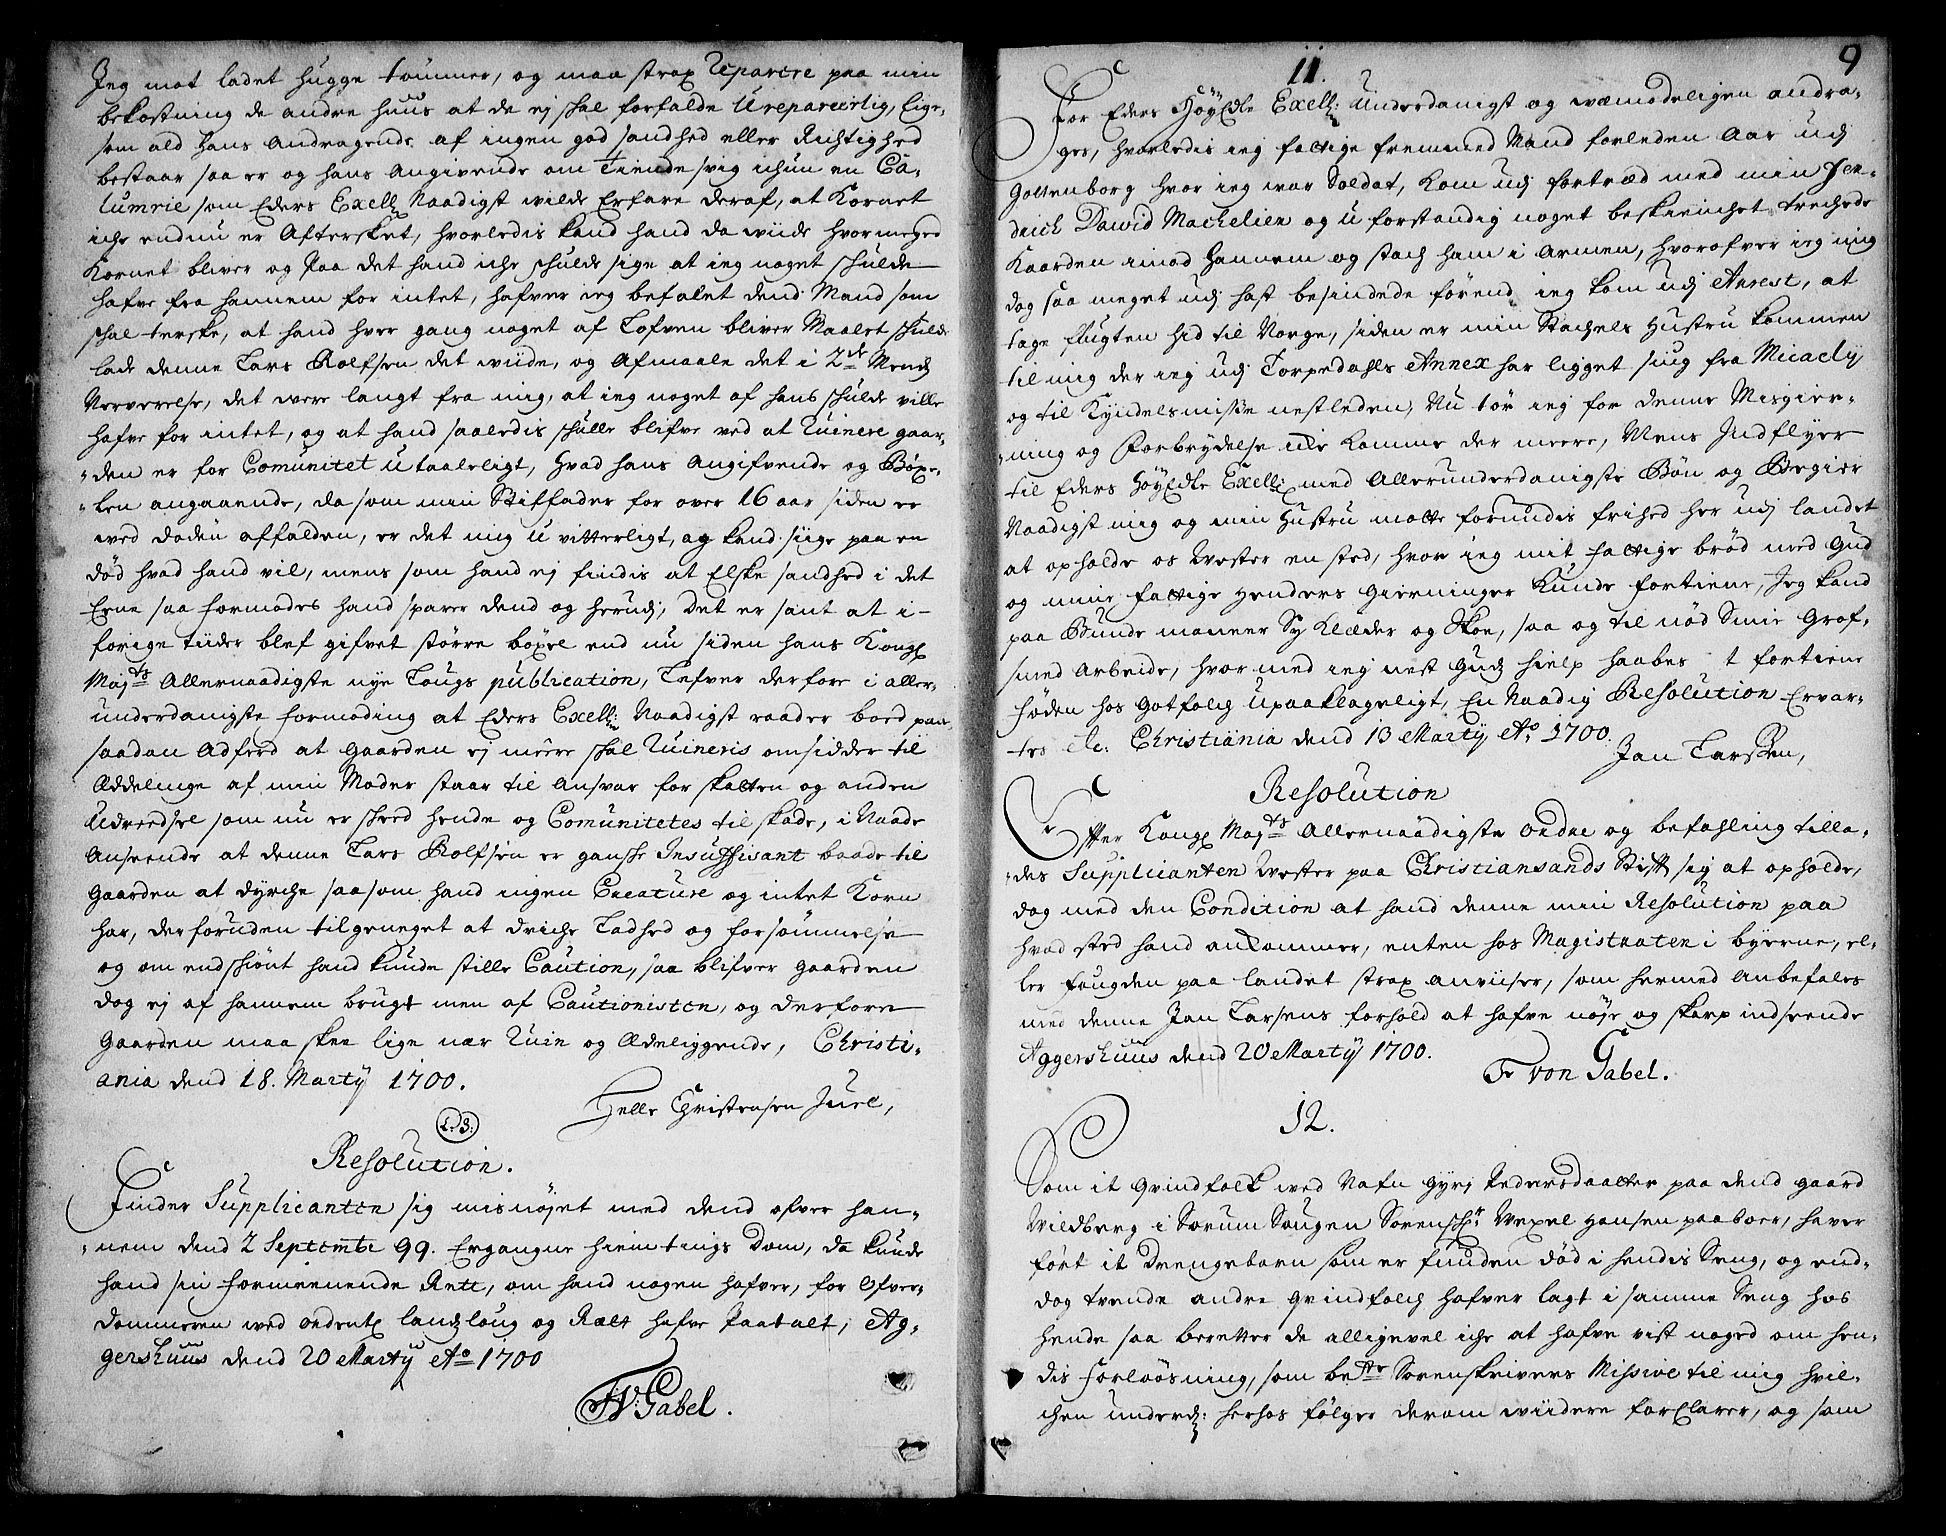 Jeg mot ladet hugge tømmer, og maa strax Reparere paa min
bekostning de andre huus at de ej skal forfalde Ureparerlig, lige-
som ald hans Andragende af ingen god sandhed eller Richtighed
bestaar saa er og hans Angivende om Tiende svig ichun en Ca-
lumnie som Eders Exell Naadigst wilde Erfare deraf, at Kornet
iche endnu er Aftersket, hvorledis kand hand da wiide hvormeged
Kornet bliver og Paa det hand iche skulde sige at ieg noget skulde
hafve fra hannem for intet, hafver ieg befalet dend Mand som
skal terske, at hand hver gang noget af Lofven bliver Maalet skulde
lade denne Lars Rolfsen det wiide, og Afmaale det i 2de Mends
Nerverelse, det were langt fra mig, at ieg noget af hans skulde ville
hafve for intet, og at hand saaledis skulle blifve ved at Ruinere gaar-
den er for Comunitet Utaaleligt, Hvad hans Angifvende og Böxe-
len angaaende, da som min Stiffader for over 16 aar siden er
wed doden affalden, er det mig U vitterligt, og kand siige paa en
død hvad hand vil, mens som hand ej findis at Elske sandhed i det
Eene saa formodes hand sparer dend og herudj, Det er sant at i
forige tiider blef gifvet större böxel end nu siden hans Kongl
Mayts Allernaadigste nye Lougs publication, Lefver derfore i aller-
underdanigste formoding at Eders Exell: Naadigst raader bood paa
saadan Adferd at Gaarden ej meere skal Ruineris omsidder til
Øddelinge af min Moder staar til Ansvar for skatten og anden
Udreedsel som nu er skeed hende og Comunitetes til skade, i Naade
Anseende at denne Lars Rolfsen er ganske Insuffisant baade til
Gaarden at dyrche saasom hand ingen Creature og intet Korn
har, desforuden tilgeneget at driche Ladhed og forsömmelse
og om endskiönt hand kunde stille Caution, saa blifver gaarden
dog ej af hannem brugt men af Cautionisten, og derfore
Gaarden maa skee lige nær Ruin og Ødeliggende, Christi-
ania dend 18. Marty 1700.
Helle Christensen Juel,
L. S:
Resolution.
Finder Supplicanten sig misnöjet med dend ofver han-
nem dend 2 Septembr 99. Ergangne hiemtings Dom, da kunde
hand sin formeenende Rett, om hand nogen hafver, for Ofver-
dommeren wed ordentl landsloug og Rætt hafve Paatalt, Ag-
gershuus dend 20 Marty Ao 1700
FV: Gabel.
9
11.
For Eders Höyædle Exell: Underdanigst og wæmodeligen andra-
ges, hvorledis ieg fattige fremmed Mand forleden Aar udj
Gottenborg hvor ieg war Soldat, kom udj fortræd med min Fen-
drich Dawid Machelien og u forstandig noget beskienchet trechede
Kaarden imod hannem og stach ham i Armen, hvorofver ieg mig
dog saa meget udj hast besindede förend ieg kom udj Arrest, at
tage flugten hid til Norge, siden er min Stachels Hustru kommen
til mig der ieg udj Torpedahls Annex har ligget siug fra Micaely
og til Kyndelsmisse nestleden, Nu tör ieg for denne Misgier-
ning og Forbrydelse iche komme der meere, Mens Indflyer
til Eders Höyædle Exell: med Allerunderdanigste Bön og Begier
Naadigst mig og min Hustru motte forundis frihed her udj landet
at opholde os Wester en sted, hvor ieg mit fattige bröd med Gud
og mine fattige Henders Gierninger Kunde fortiene, Jeg kand
paa Bunde maneer Sy Klæder og Skoe, saa og til nöd Smie Grof-
smed Arbeide, hvor med ieg nest Guds hielp haabes t fortiene
föden hos Gotfolch Upaaklageligt, En Naadig Resolution Ervar-
tes etc: Christiania dend 13 Marty Ao 1700.
Jan Larssen,
Resolution
Efter Kongl Mayts Allernaadigste ordre og befahling tilla-
des Supplicanten Wester paa Christiansands Stift sig at opholde,
dog med den Condition at hand denne min Resolution paa
hvad sted hand ankommer, enten hos Magistraten i byerne, el-
ler fougden paa landet strax anviiser, som hermed Anbefales
med denne Jan Larsens forhold at hafve nöje og skarp indseende
Aggershuus dend 20 Marty 1700.
Fr von Gabel.
12.
Som it Qvindfolk wed Nafn Gyrj Pedersdaatter paa dend gaard
Wildberg i Sørum Sougen Sorenschr Wexel Hansen paaboer, haver
fört it Drengebarn som er funden död i hendis Seng, og end-
dog tvende andre Qvindfolch hafver lagt i samme Seng hos
hende saa beretter de alligevel iche at hafve vist noged om hen-
dis forlöösning, som bete Sorenskrivers Missive til mig hvil-
chen underd: herhos fölger derom wiidere forClarer, og som